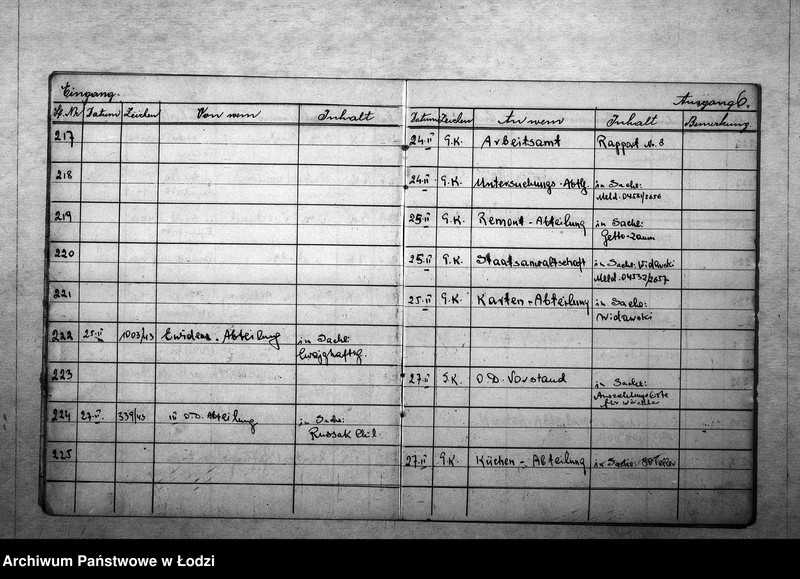 Eingang.
Ausgang 6.
Lf. Nr. Datum Zeichen Von wem Inhalt Datum Zeichen An wem Inhalt Bemerkung
217 24.II G.K. Arbeitsamt Rapport Nr. 8
218 24.II G.K. Untersuchungs-Abtlg. in Sache:
Meld. 04521/2656
219 25.II G.K. Remont-Abteilung in Sache:
Getto-Zaun
220 25.II G.K. Staatsanwaltschaft in Sache: Widawski
Meld. 04532/2657
221 25.II G.K. Karten-Abteilung in Sache:
Widawski
222 25.II 1003/43 Evidenz-Abteilung in Sache
223 27.II G.K. O.D. Vorstand in Sache:
für Wächter
224 27.II. 339/43 III O.D. Abteilung in Sache:
Russak Chil.
225 27.II G.K. Küchen-Abteilung in Sache: 80 Teller
Archiwum Państwowe w Łodzi